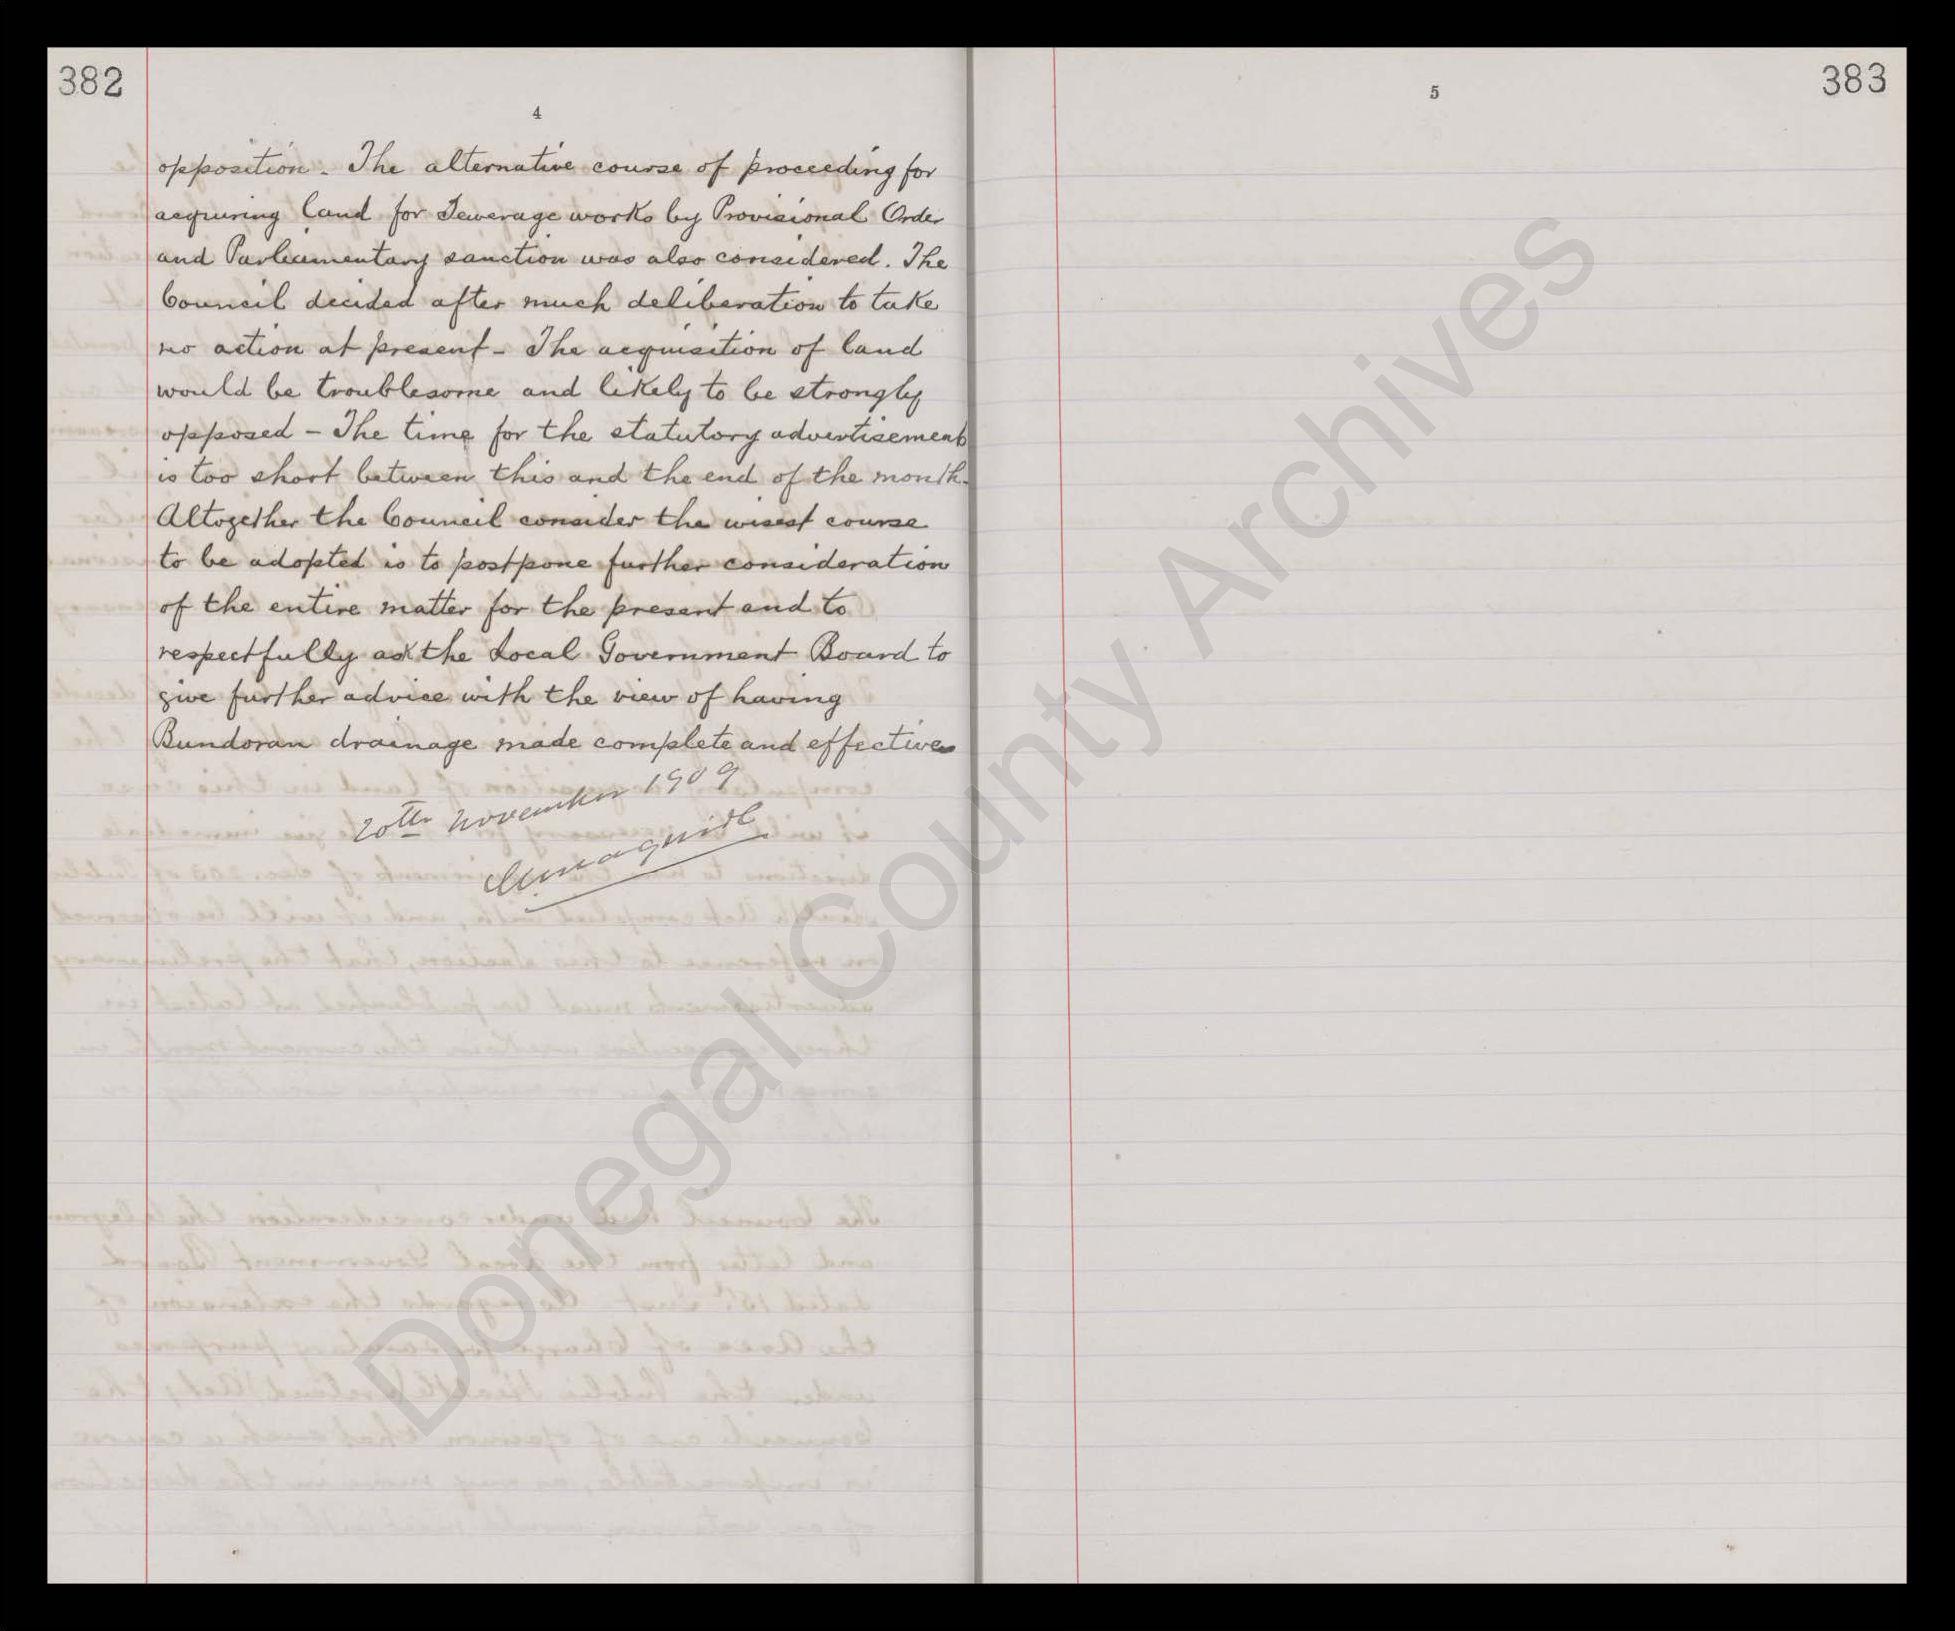 382
4
opposition. The alternative course of proceeding for
acquiring land for Sewerage works by Provisional Order
and Parliamentary sanction was also considered. The
Council decided after much deliberation to take
no action at present - The acquisition of land
would be troublesome and likely to be strongly
opposed - The time for the statutory advertisement
is too short between this and the end of the month.
Altogether the Council consider the wisest course
to be adopted is to postpone further consideration
of the entire matter for the present and to
respectfully ask the Local Government Board to
give further advice with the view of having
Bundoran drainage made complete and effective
20th November 1909
383
5
Donegal County Archives